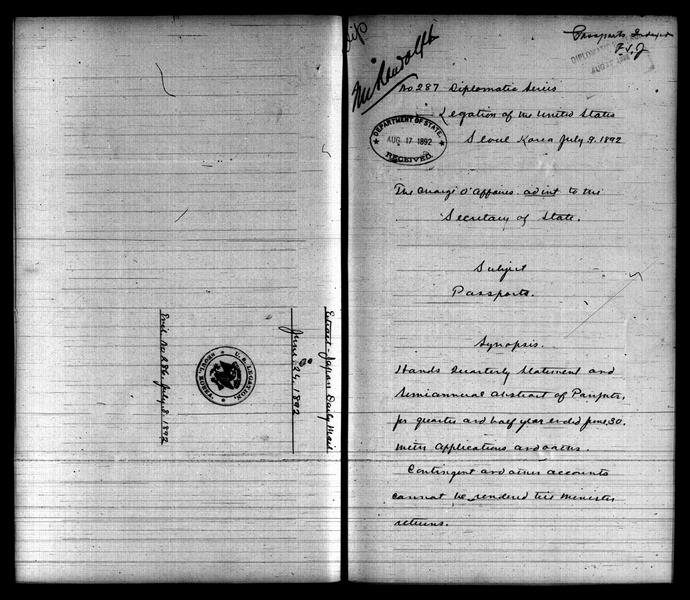 Extract Japan Daily Mail
June 24, 1892
Encl. No 286 July 8. 1892
U.S. LEGATION.
SEOUL, KOREA.
Dip
Mr Randolph
Passports Indexed
F.V.J
DIPLOMATIC
No 287 Diplomatic Series
Legation of the United States
Seoul Korea July 9. 1892
DEPARTMENT OF STATE,
AUG 17 1892
RECEIVED.
The Chargé d'Affaires ad int to the
Secretary of State.
Subject
Passports.
Synopsis.
Hands Quarterly Statement and
Semiannual abstract of Passpts,
for quarter and half year ended June, 30.
with applications and oaths.
Contingent and other accounts
cannot be rendered till Minister
returns.